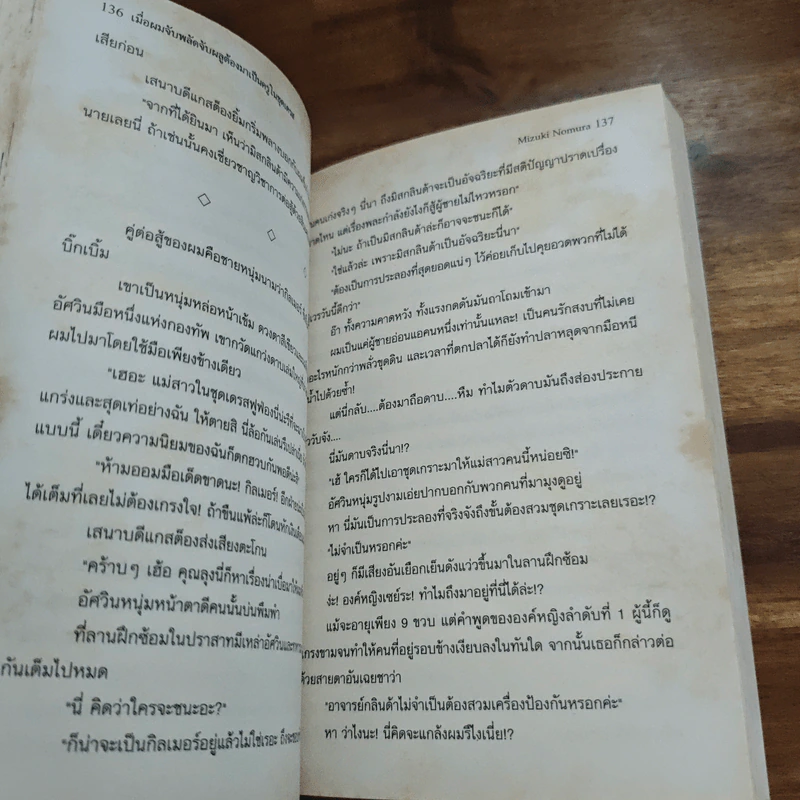 136 เมื่อผมจับพลัดจับผลูต้องมาเป็นครูในชุดเดรส
เสียก่อน
เสนาบดีแกสต็องยิ้มกริ่มพลางบอกกับผม
"จากที่ได้ยินมา เห็นว่ามิสกลินด้ามีความ
นายเลยนี่ ถ้าเช่นนั้นคงเชี่ยวชาญวิชาการต่อสู้
◇ ◇
คู่ต่อสู้ของผมคือชายหนุ่มนามว่ากิลเมอร์
บิ๊กเบิ้ม
เขาเป็นหนุ่มหล่อหน้าเข้ม ดวงตาสีเขียว
อัศวินมือหนึ่งแห่งกองทัพ เขากวัดแกว่งดาบเล่มใหญ่
ผมไปมาโดยใช้มือเพียงข้างเดียว
"เฮอะ แม่สาวในชุดเดรสฟูฟ่องนี่น่ะรึที่
แกร่งและสุดเท่อย่างฉัน ให้ตายสิ นี่ล้อกันเล่นรึเปล่า
แบบนี้ เดี๋ยวความนิยมของฉันก็ตกฮวบกันพอดีน่ะสิ
"ห้ามออมมือเด็ดขาดนะ! กิลเมอร์! อีกฝ่าย
ได้เต็มที่เลยไม่ต้องเกรงใจ! ถ้าขืนแพ้ล่ะก็โดนหักเงินเดือน
เสนาบดีแกสต็องส่งเสียงตะโกน
"คร้าบๆ เฮ้อ คุณลุงนี่ก็หาเรื่องน่าเบื่อมาให้
อัศวินหนุ่มหน้าตาดีคนนั้นบ่นพึมพำ
ที่ลานฝึกซ้อมในปราสาทมีเหล่าอัศวินและ
กันเต็มไปหมด
"นี่ คิดว่าใครจะชนะอะ?"
"ก็น่าจะเป็นกิลเมอร์อยู่แล้วไม่ใช่เรอะ ถึงจะ
Mizuki Nomura 137
คนเก่งจริงๆ นี่นา ถึงมิสกลินด้าจะเป็นอัจฉริยะที่มีสติปัญญาปราดเปรื่อง
ไหน แต่เรื่องพละกำลังยังไงก็สู้ผู้ชายไม่ไหวหรอก"
"ไม่นะ ถ้าเป็นมิสกลินด้าล่ะก็อาจจะชนะก็ได้"
"ใช่แล้วล่ะ เพราะมิสกลินด้าเป็นอัจฉริยะนี่นา"
"ต้องเป็นการประลองที่สุดยอดแน่ๆ ไว้ค่อยเก็บไปคุยอวดพวกที่ไม่ได้
เวรวันนี้ดีกว่า"
อ๊า ทั้งความคาดหวัง ทั้งแรงกดดันมันถาโถมเข้ามา
ผมเป็นแค่ผู้ชายอ่อนแอคนหนึ่งเท่านั้นแหละ! เป็นคนรักสงบที่ไม่เคย
อะไรหนักกว่าพลั่วขุดดิน และเวลาที่ตกปลาได้ก็ยังทำปลาหลุดจากมือหนี
น้ำไปด้วยซ้ำ!
แต่นี่กลับ....ต้องมาถือดาบ....หืม ทำไมตัวดาบมันถึงส่องประกาย
วับจัง....
นี่มันดาบจริงนี่นา!?
"เฮ้ ใครก็ได้ไปเอาชุดเกราะมาให้แม่สาวคนนี้หน่อยซิ!"
อัศวินหนุ่มรูปงามเอ่ยปากบอกกับพวกคนที่มามุงดูอยู่
หา นี่มันเป็นการประลองที่จริงจังถึงขั้นต้องสวมชุดเกราะเลยเรอะ!?
"ไม่จำเป็นหรอกค่ะ"
อยู่ๆ ก็มีเสียงอันเยือกเย็นดังแว่วขึ้นมาในลานฝึกซ้อม
ง่ะ! องค์หญิงเซย์ระ! ทำไมถึงมาอยู่ที่นี่ได้ล่ะ!?
แม้จะอายุเพียง 9 ขวบ แต่คำพูดขององค์หญิงลำดับที่ 1 ผู้นี้ก็ดู
เกรงขามจนทำให้คนที่อยู่รอบข้างเงียบลงในทันใด จากนั้นเธอก็กล่าวต่อ
ด้วยสายตาอันเฉยชาว่า
"อาจารย์กลินด้าไม่จำเป็นต้องสวมเครื่องป้องกันหรอกค่ะ"
หา ว่าไงนะ! นี่คิดจะแกล้งผมรึไงเนี่ย!?